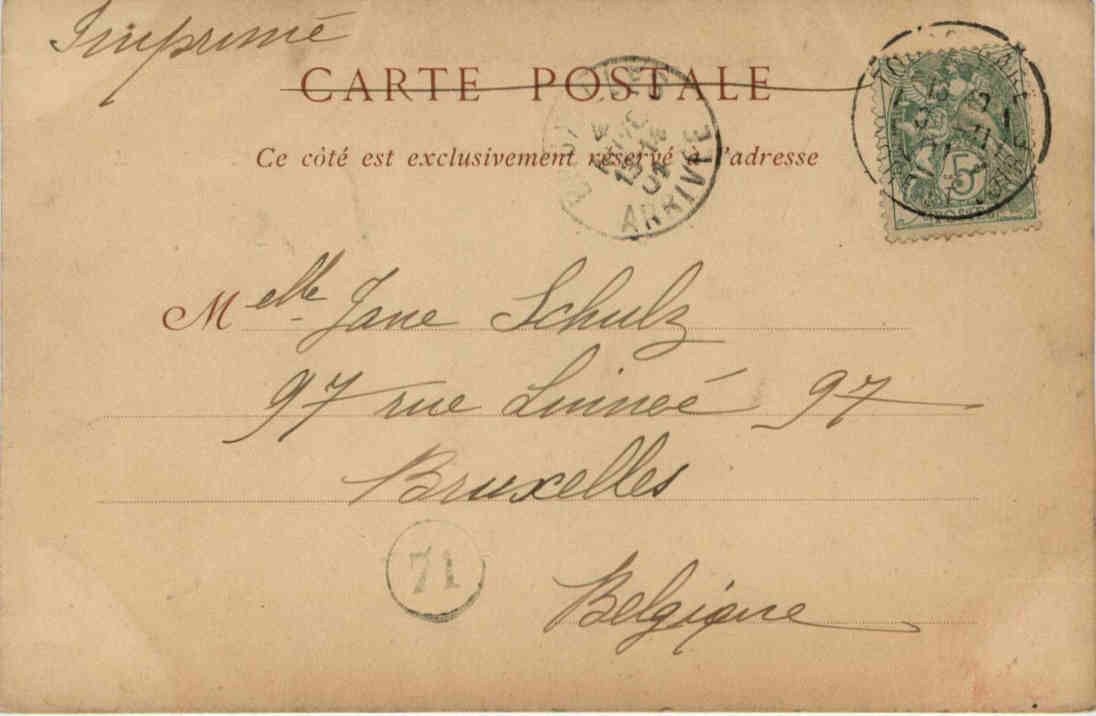 Imprimé
CARTE POSTALE
Ce côté est exclusivement réservé à l'adresse
ARRIVÉE
5
Melle Jane Schulz
97 rue Linnée 97
Bruxelles
71
Belgique